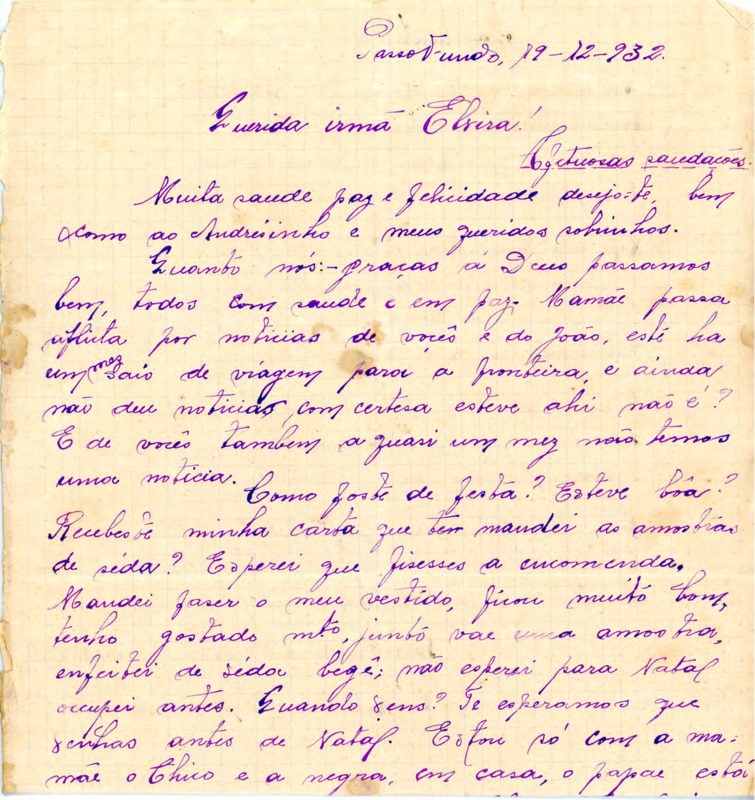 Passo Fundo, 19-12-932.
Querida irmã Elvira!
Afetuosas saudações.
Muita saude paz e felicidade desejo-te, bem
como ao Andrésinho e meus queridos sobrinhos.
Quanto nós:- graças á Deus passamos
bem, todos com saude e em paz. Mamãe passa
aflita por noticias de vocês e do João, esté ha
um mez saio de viagem para a fronteira, e ainda
não deu noticias, com certesa esteve ahi não é?
E de vocês tambem a quasi um mez não temos
uma noticia.
Como foste de festa? Esteve bôa?
Recebes minha carta que mandei as amostras
de sêda? Esperei que fisesses a encomenda.
Mandei faser o meu vestido, ficou muito bom,
tenho gostado mto, junto vae uma amostra,
enfeitei de sêda begê; não esperei para Natal
occupei antes. Quando vens? Te esperamos que
venhas antes de Natal. Estou só com a ma-
mãe o Chico e a negra, em casa, o papae está